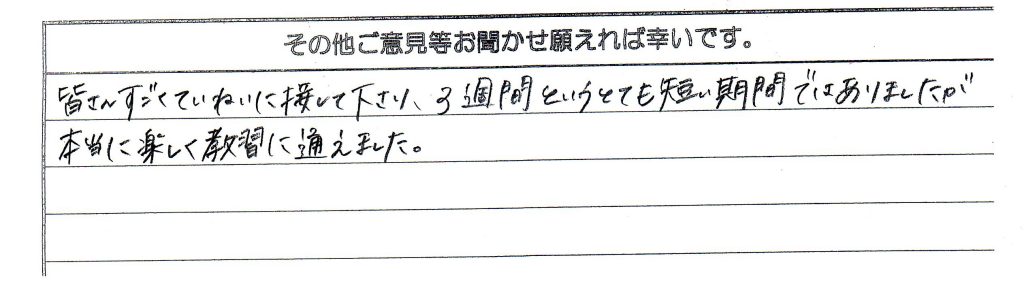 その他ご意見等お聞かせ願えれば幸いです。
皆さんすごくていねいに接して下さり、3週間というとても短い期間ではありましたが
本当に楽しく教習に通えました。